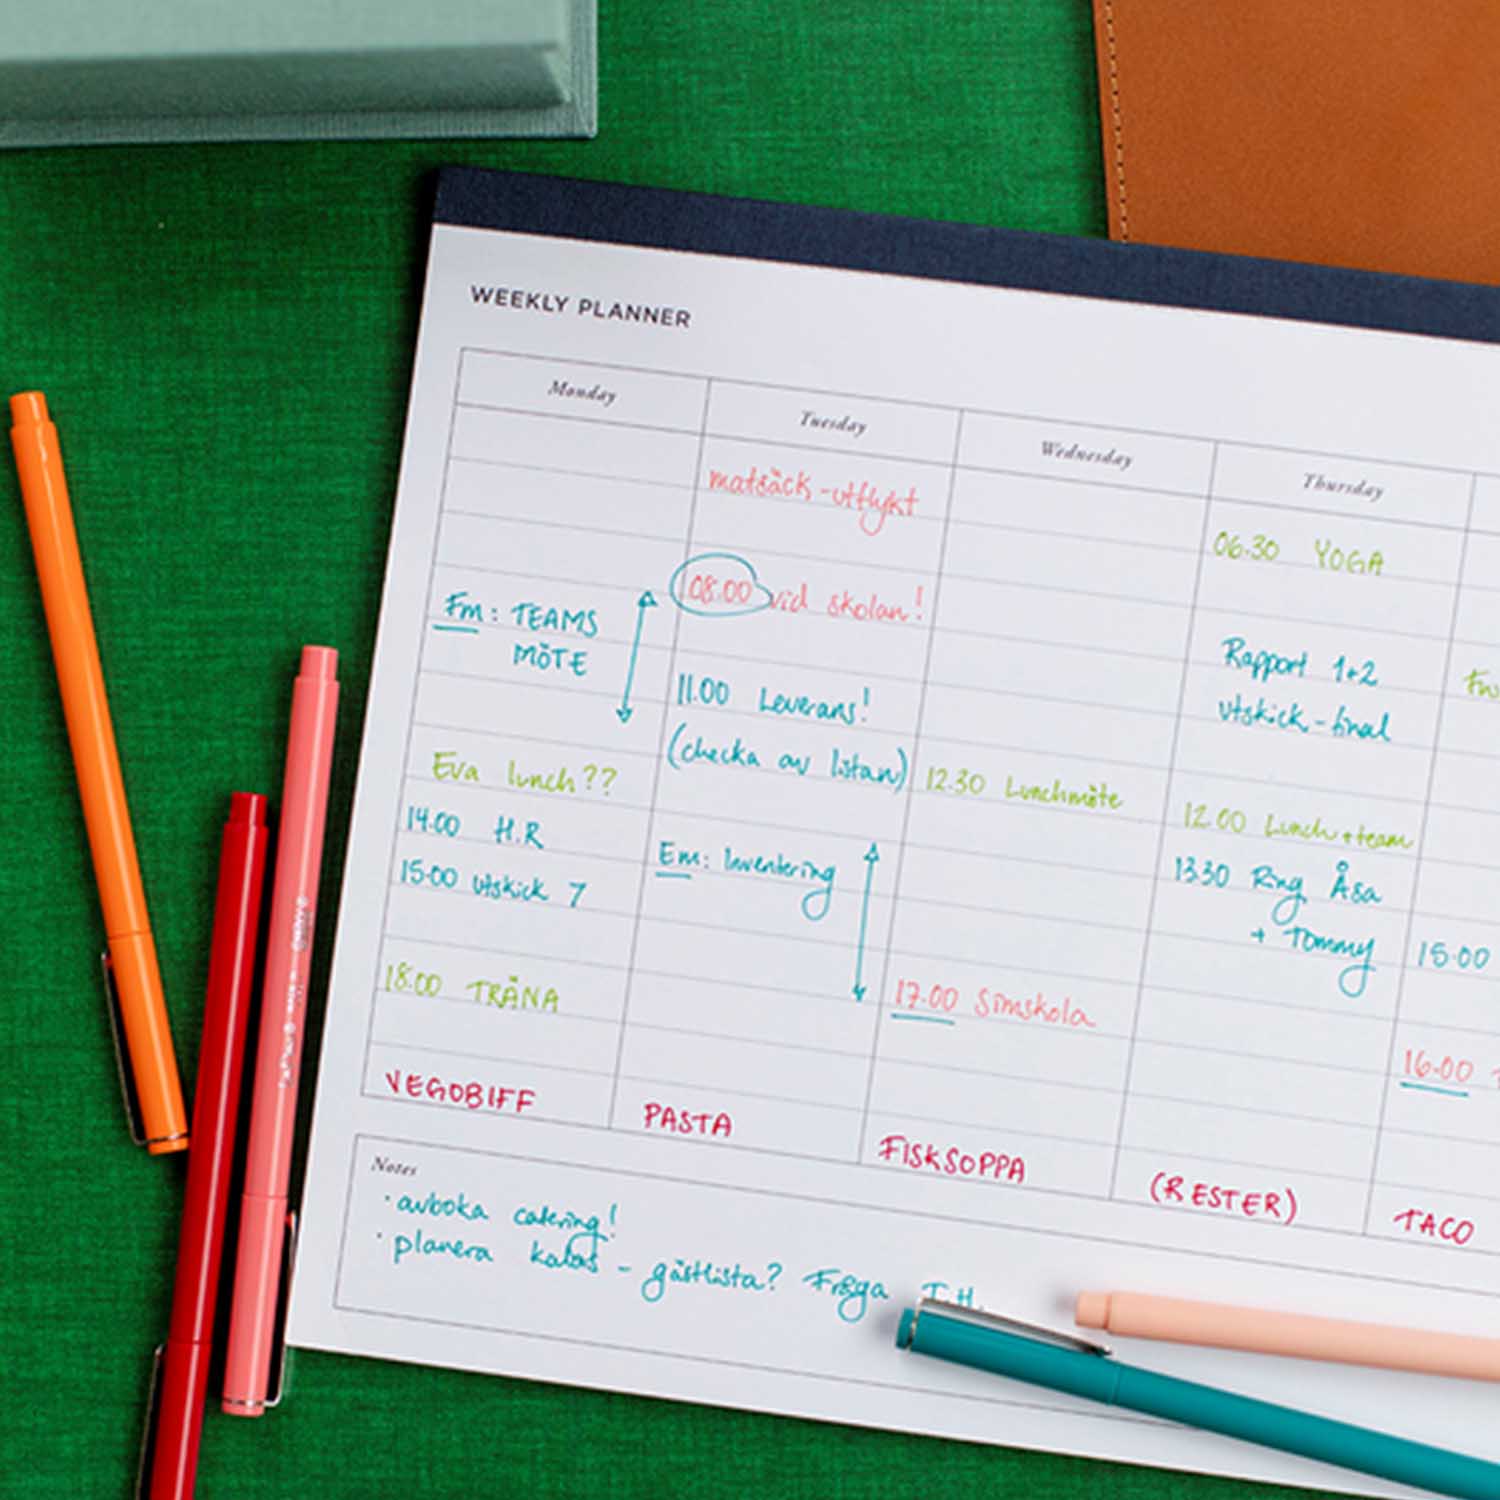 WEEKLY PLANNER
Monday
Fm: TEAMS
MÖTE
Eva lunch??
14.00 H.R
15.00 utskick 7
18.00 TRÄNA
VEGOBIFF
Tuesday
matsäck - utflykt
08.00 vid skolan!
11.00 Leverans!
(checka av listan)
Em: Inventering
PASTA
Wednesday
12.30 Lunchmöte
17.00 Simskola
FISKSOPPA
Thursday
06.30 YOGA
Rapport 1+2
utskick - final
12.00 Lunch + team
13.30 Ring Åsa
+ Tommy
(RESTER)
15.00
16.00
TACO
Notes
· avboka catering!
· planera kalas - gästlista? Fråga T.H.